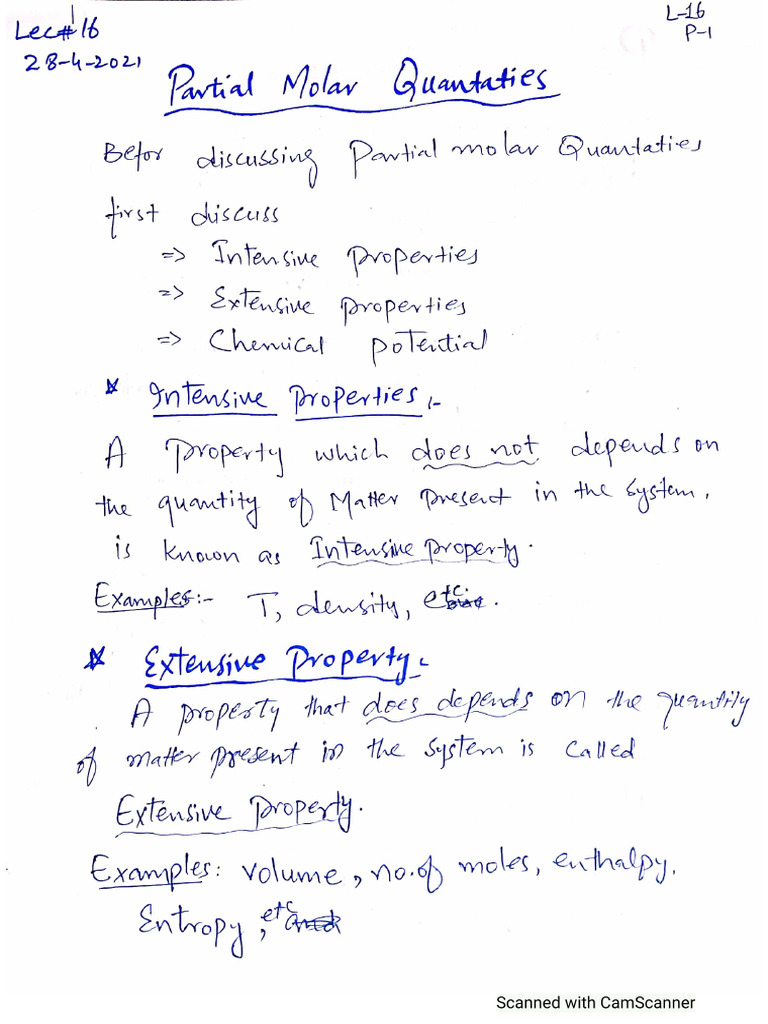 Lec#16
L-16
P-1
28-4-2021
Partial Molar Quantaties
Befor discussing Partial molar Quantaties
first discuss
=> Intensive properties
=> Extensive properties
=> Chemical potential
* Intensive Properties:-
A Property which does not depends on
the quantity of Matter present in the system.
is known as Intensive property.
Examples:- T, density, etc.
* Extensive Property:-
A property that does depends on the quantity
of matter present in the system is called
Extensive Property.
Examples: volume, no. of moles, enthalpy.
Entropy, etc
Scanned with CamScanner